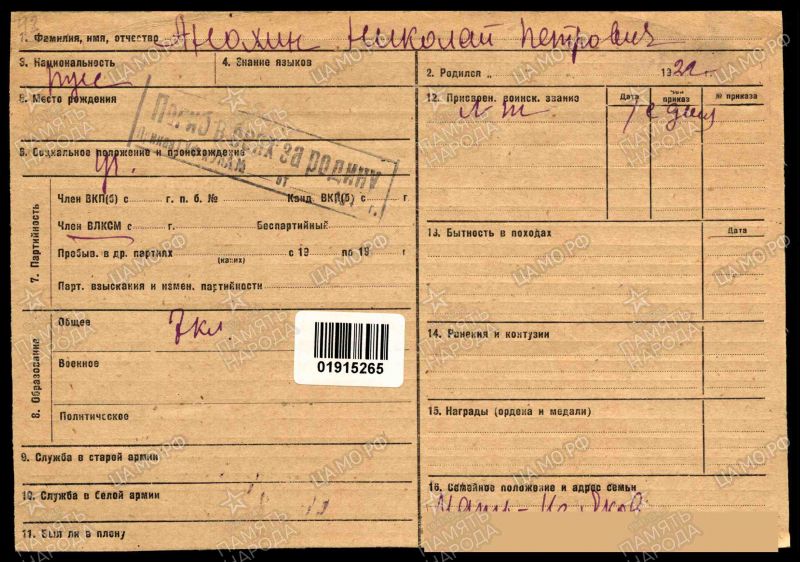 1. Фамилия, имя, отчество Анохин Николай Петрович
3. Национальность
рус
4. Знание языков
5. Место рождения
Погиб в боях за родину
от г.
6. Социальное положение и происхождение
7. Партийность
Член ВКП(б) с г. п. б. № Канд ВКП(б) с г.
Член ВЛКСМ с г. Беспартийный
Пробыв. в др. партиях с 19 по 19 г.
(каких)
Парт. взыскания и измен. партийности
8. Образование
Общее 7 кл.
Военное
Политическое
01915265
9. Служба в старой армии
10. Служба в белой армии
11. Был ли в плену
2. Родился „ 1922 г.
12. Присвоен. воинск. звания
Дата
Чей приказ
№ приказа
13. Бытность в походах
Дата
14. Ранения и контузии
15. Награды (ордена и медали)
16. Семейное положение и адрес семьи
ПАМЯТЬ НАРОДА
ЦАМО.РФ